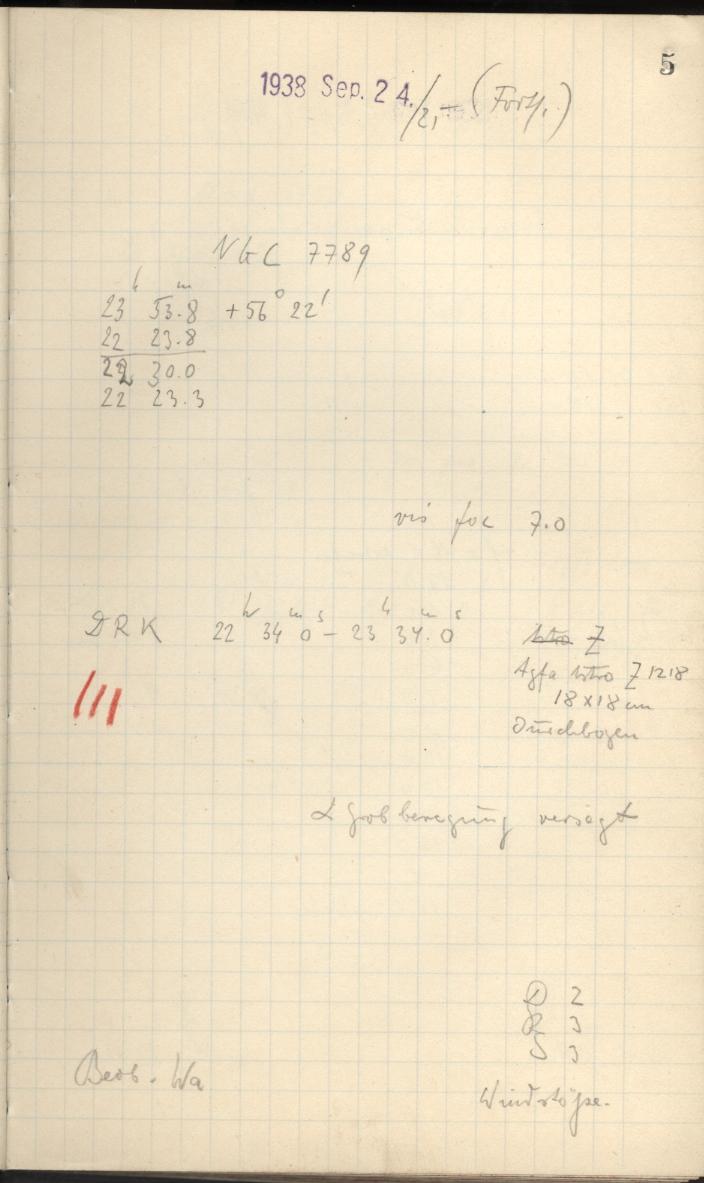 5
1938 Sep. 24./25. (Forts.)
NGC 7789
h m
23 53.8 +56° 22'
22 23.8
22 30.0
22 23.3
vis foc 7.0
DRK 22h 34m 0s – 23h 34m.0s Z
Agfa Astro Z 1218
18x18 cm
Durchbogen
α Grobbewegung versagt
D 2
R 3
S 3
Beob. Wa
Windstöße.